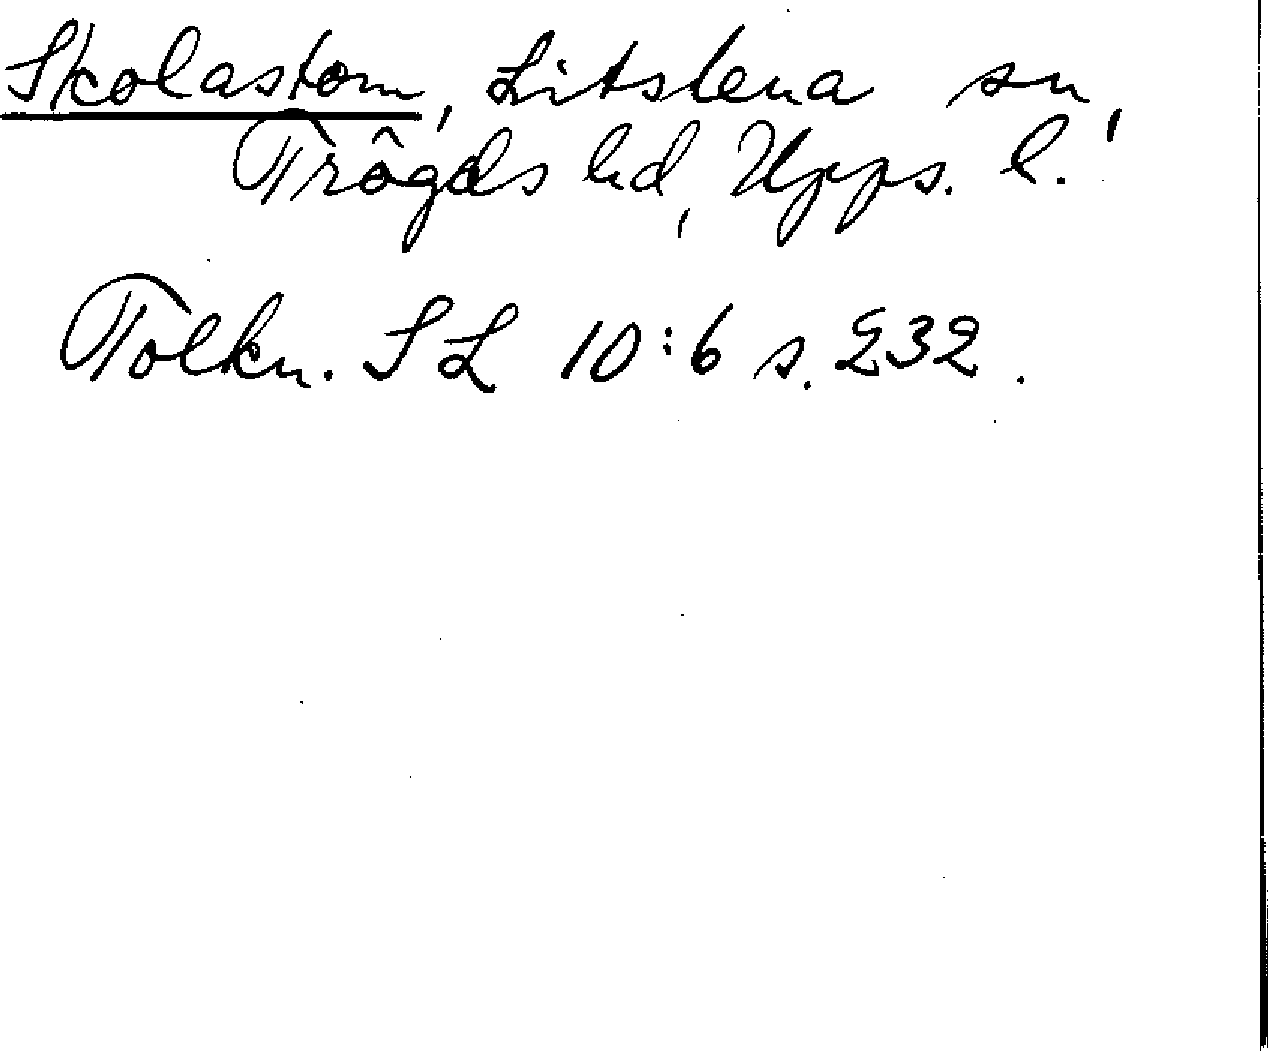 Skolastom, Litslena sn,
Trögds hd, Upps. l.
Tolkn. SL 10:6 s. 232.